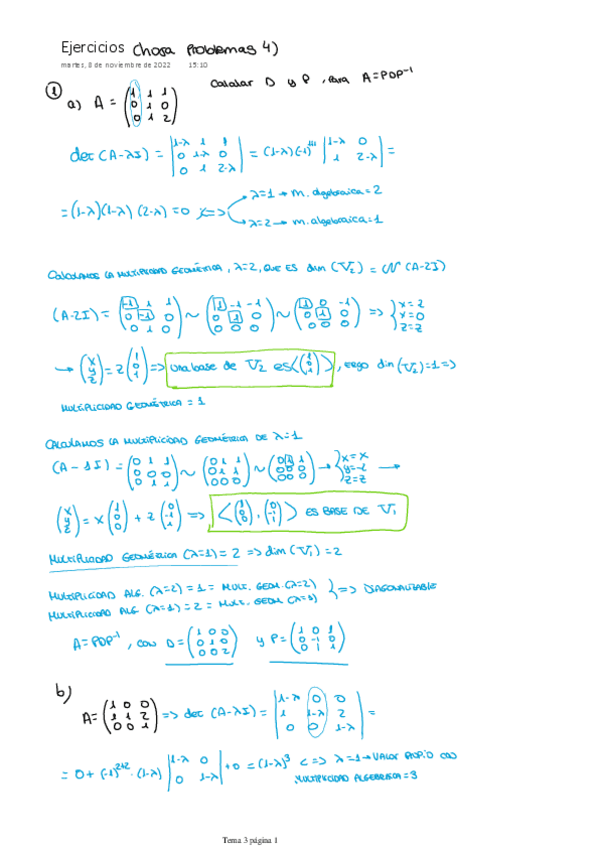 Ejercicios Chosa Problemas 4)
martes, 8 de noviembre de 2022 15:10
Calcular D y P, para A=PDP⁻¹
① a) A = (1 1 1; 0 1 0; 0 1 2)
det (A-λI) = |1-λ 1 1; 0 1-λ 0; 0 1 2-λ| = (1-λ)(-1)¹⁺¹ |1-λ 0; 1 2-λ| =
= (1-λ)(1-λ)(2-λ) = 0 <=> λ=1 → m. algebraica = 2
λ=2 → m. algebraica = 1
Calculamos la multiplicidad geométrica, λ=2, que es dim (V₂) = N (A-2I)
(A-2I) = (-1 1 1; 0 -1 0; 0 1 0) ~ (1 -1 -1; 0 1 0; 0 0 0) ~ (1 0 -1; 0 1 0; 0 0 0) => {x=z y=0 z=z
→ (x y z) = z (1 0 1) => una base de V₂ es <(1 0 1)>, ergo dim (V₂)=1 =>
multiplicidad geométrica = 1
Calculamos la multiplicidad geométrica de λ=1
(A-1I) = (0 1 1; 0 0 0; 0 1 1) ~ (0 1 1; 0 1 1; 0 0 0) ~ (0 1 1; 0 0 0; 0 0 0) → {x=x y=-z z=z →
(x y z) = x (1 0 0) + z (0 -1 1) => <(1 0 0), (0 -1 1)> es base de V₁
multiplicidad geométrica (λ=1) = 2 => dim (V₁) = 2
multiplicidad alg. (λ=2) = 1 = mult. geom. (λ=2)
multiplicidad alg. (λ=1) = 2 = mult. geom. (λ=1) } => diagonalizable
A=PDP⁻¹, con D = (1 0 0; 0 1 0; 0 0 2) y P = (1 0 1; 0 -1 0; 0 1 1)
b) A = (1 0 0; 1 1 2; 0 0 1) => det (A-λI) = |1-λ 0 0; 1 1-λ 2; 0 0 1-λ| =
= 0 + (-1)²⁺² · (1-λ) |1-λ 0; 0 1-λ| + 0 = (1-λ)³ <=> λ=1 → valor propio con
multiplicidad algebraica = 3
Tema 3 página 1